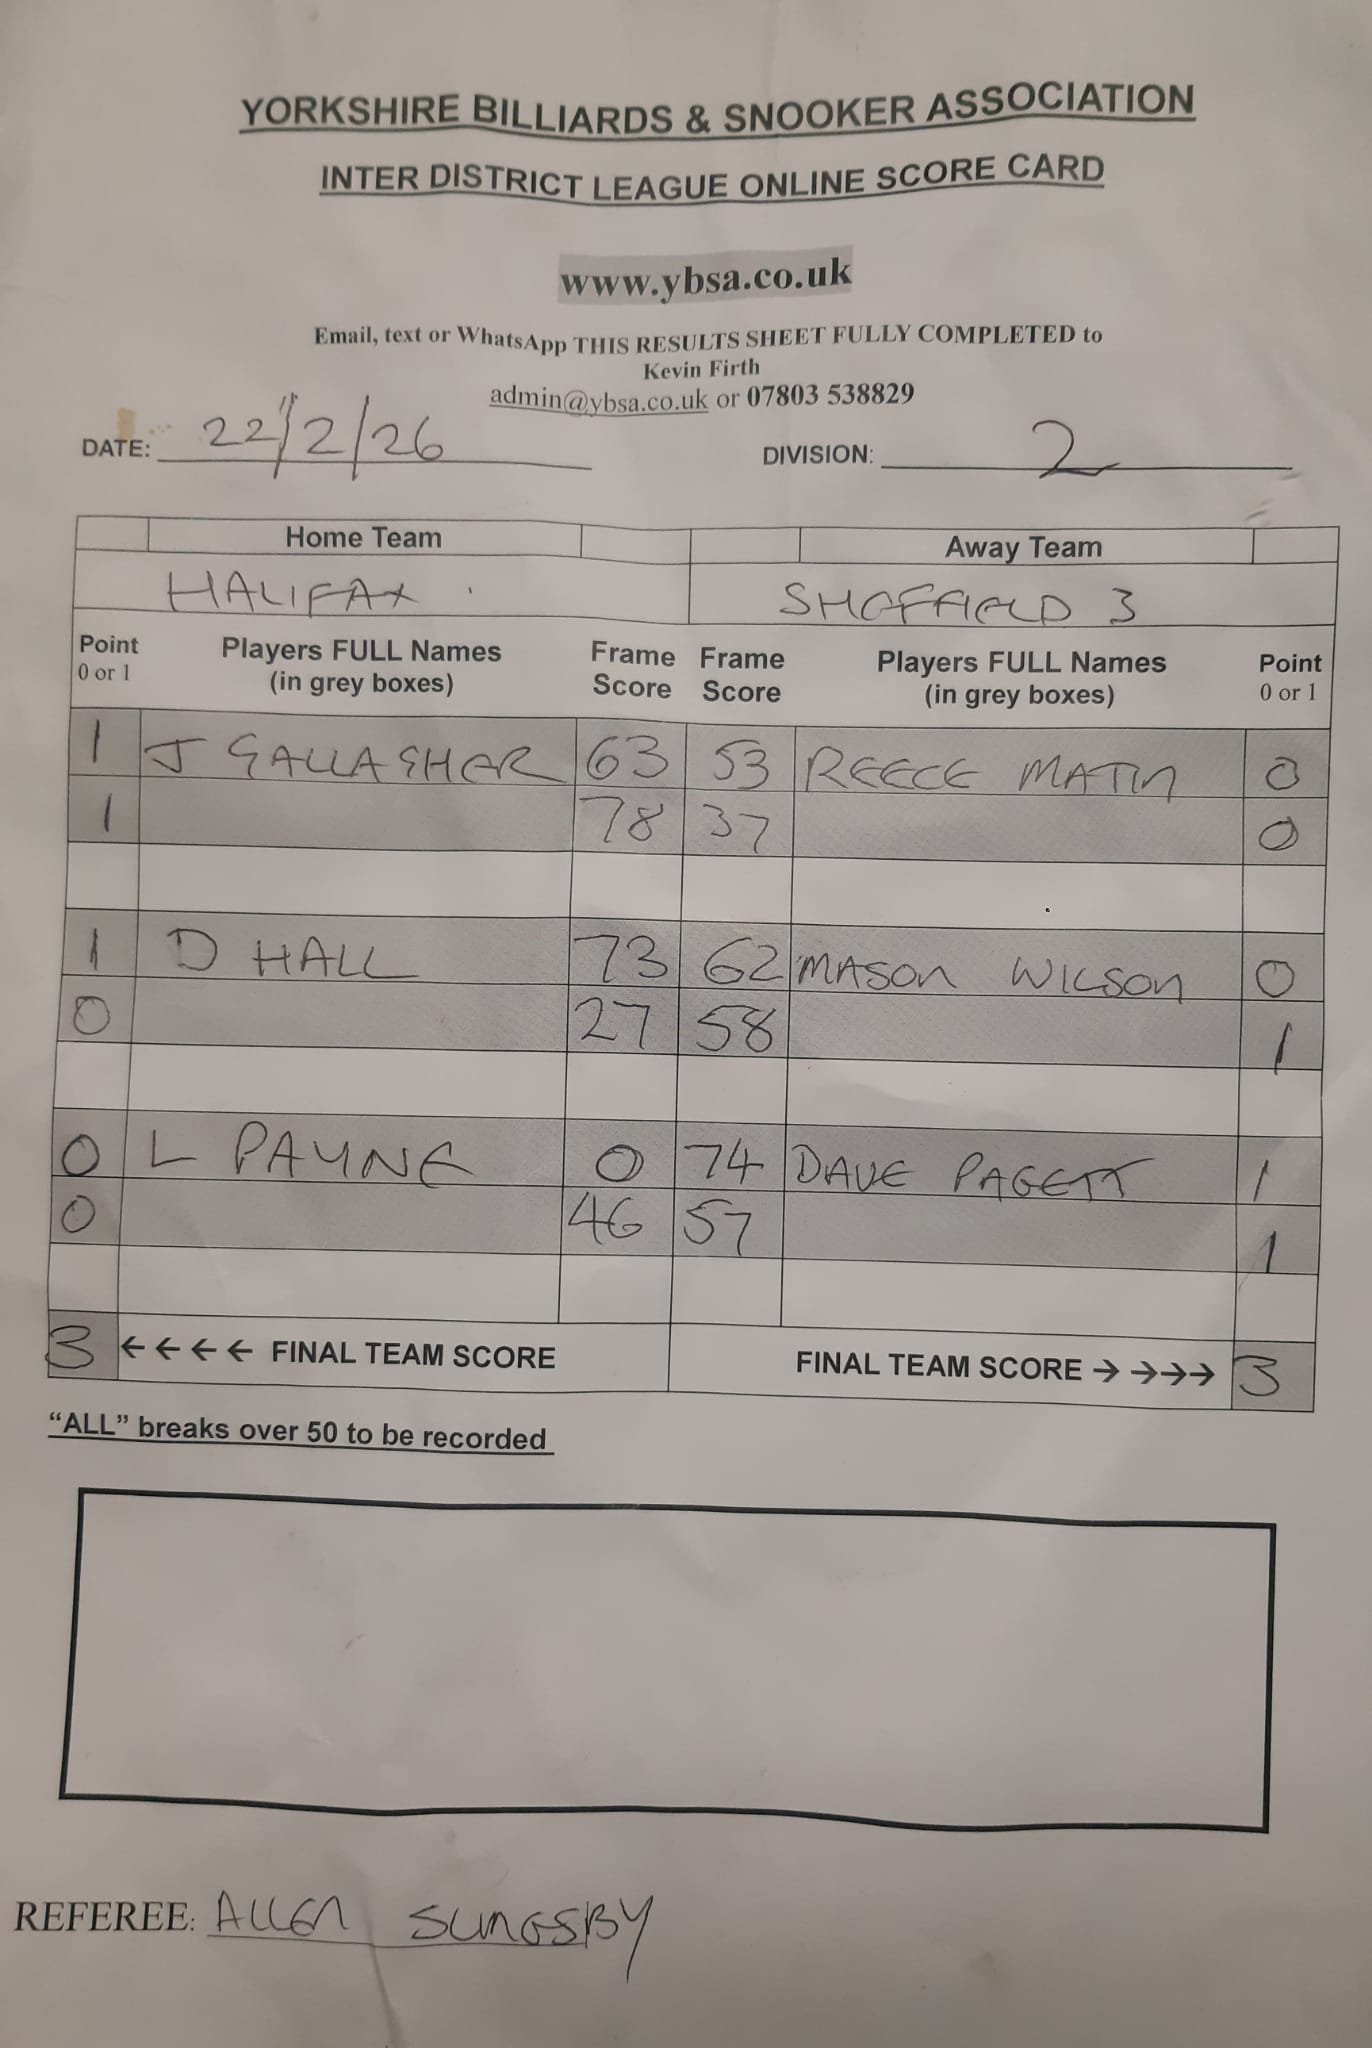 YORKSHIRE BILLIARDS & SNOOKER ASSOCIATION
INTER DISTRICT LEAGUE ONLINE SCORE CARD
www.ybsa.co.uk
Email, text or WhatsApp THIS RESULTS SHEET FULLY COMPLETED to
Kevin Firth
admin@ybsa.co.uk or 07803 538829
DATE: 22/2/26 DIVISION: 2
Home Team Away Team
HALIFAX SHEFFIELD 3
Point Players FULL Names Frame Frame Players FULL Names Point
0 or 1 (in grey boxes) Score Score (in grey boxes) 0 or 1
1 J GALLAGHER 63 53 REECE MATIN 0
1 78 37 0
1 D HALL 73 62 MASON WILSON 0
0 27 58 1
0 L PAYNE 0 74 DAVE PAGETT 1
0 46 57 1
3 ←←←← FINAL TEAM SCORE FINAL TEAM SCORE →→→→ 3
“ALL” breaks over 50 to be recorded
REFEREE: ALLEN SLINGSBY